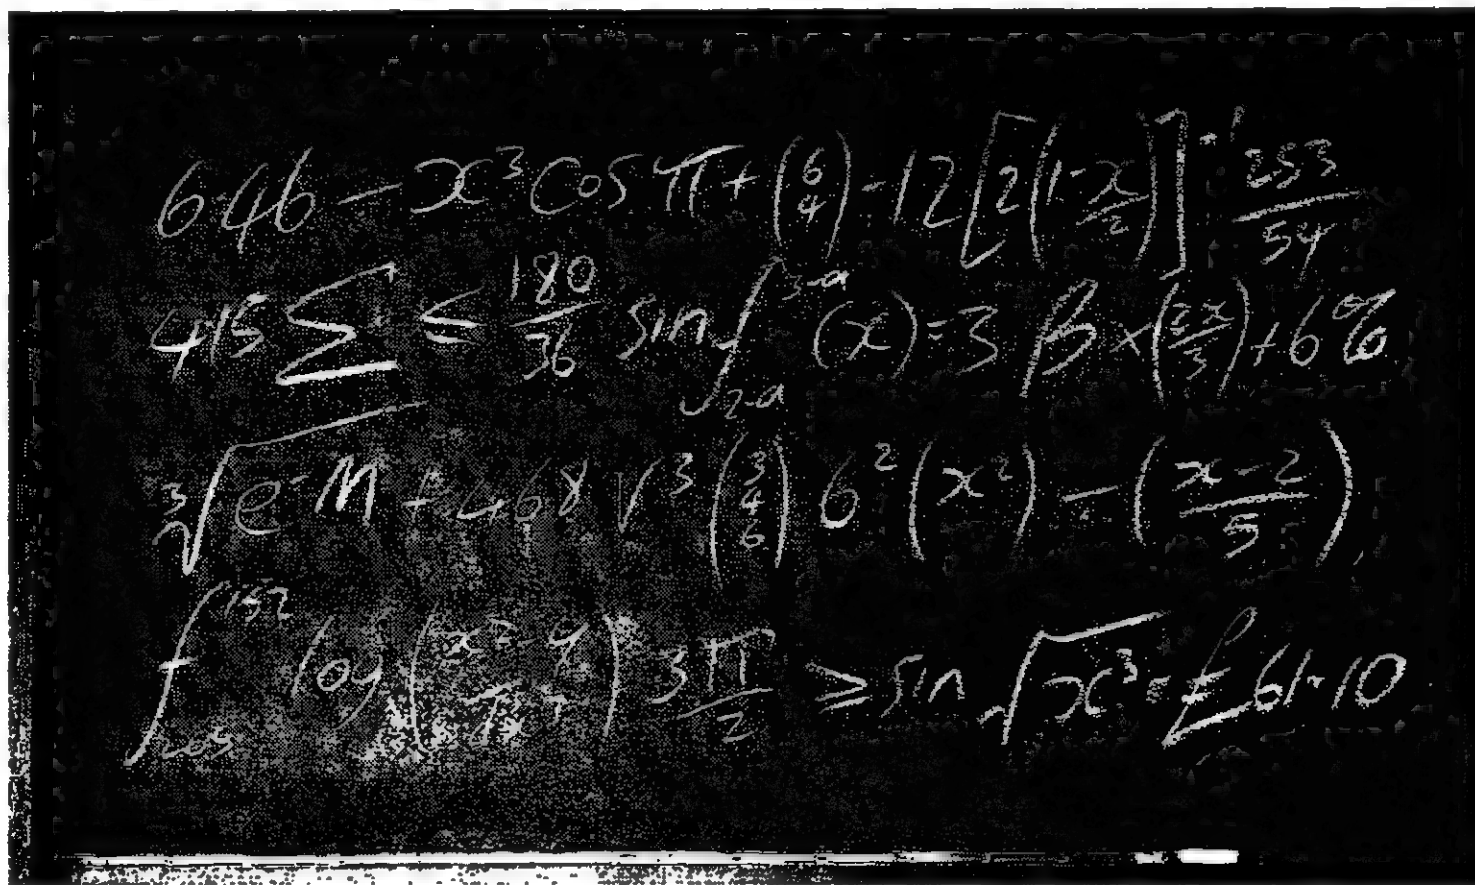 6.46 - x³ Cos π + (6 4) - 12 [2(1 - x/2)]⁻¹ 253/54
415 Σ ≤ 180/36 sin ∫ 3-a 2-a (x) = 3 β × (2x/3) + 6%
³√ e⁻ᴹ + 468 √3 (3 4 6) 6² (x²) - (x - 2 / 5)
∫ 152 205 log (x² - 9 / ) 3 π/2 ≥ sin √x³ = £ 61-10